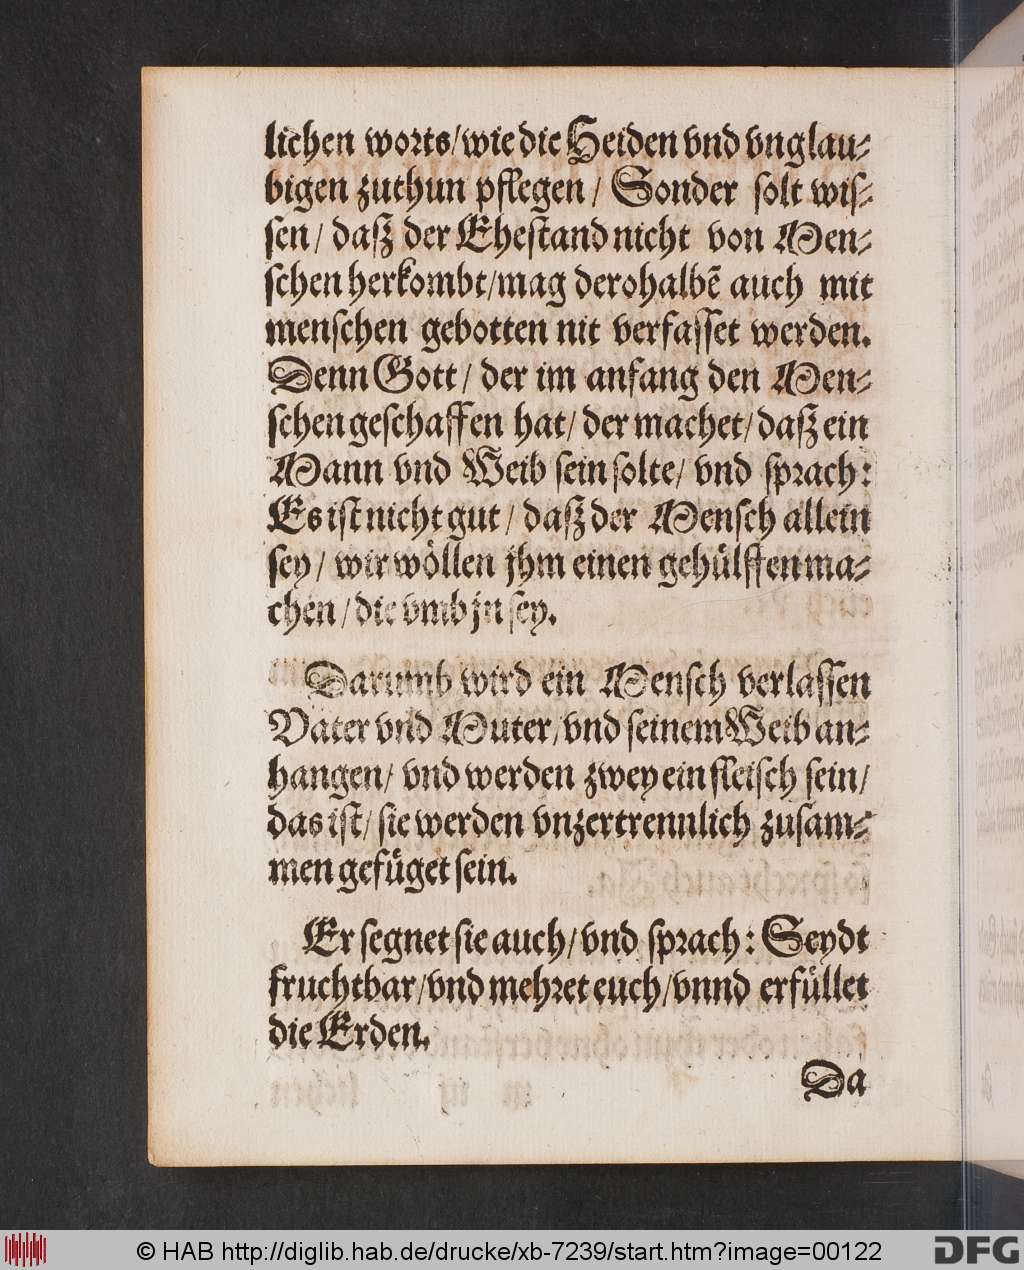 lichen worts/wie die Heiden vnd vnglau⸗
bigen zuthun pflegen / Sonder solt wis⸗
sen / daß der Ehestand nicht von Men⸗
schen herkombt/mag derohalbē auch mit
menschen gebotten nit verfasset werden.
Denn Gott / der im anfang den Men⸗
schen geschaffen hat/ der machet/ daß ein
Mann vnd Weib sein solte/ vnd sprach:
Es ist nicht gut / daß der Mensch allein
sey / wir wöllen jhm einen gehülffen ma⸗
chen / die vmb jn sey.
Darumb wird ein Mensch verlassen
Vater vnd Muter/vnd seinem Weib an⸗
hangen/ vnd werden zwey ein fleisch sein/
das ist/ sie werden vnzertrennlich zusam⸗
men gefüget sein.
Er segnet sie auch/ vnd sprach: Seydt
fruchtbar/vnd mehret euch/vnnd erfüllet
die Erden.
Da
© HAB http://diglib.hab.de/drucke/xb-7239/start.htm?image=00122
DFG